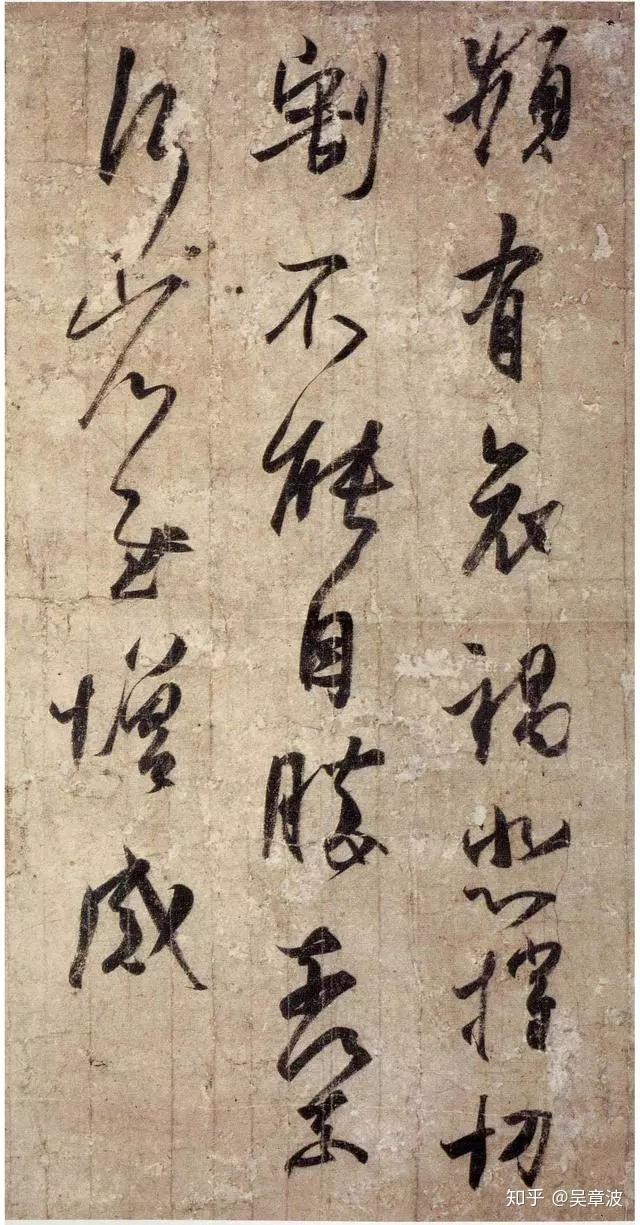 頻有哀禍悲摧切
割不能自勝奈何奈
何省慰增感
知乎 @吴章波